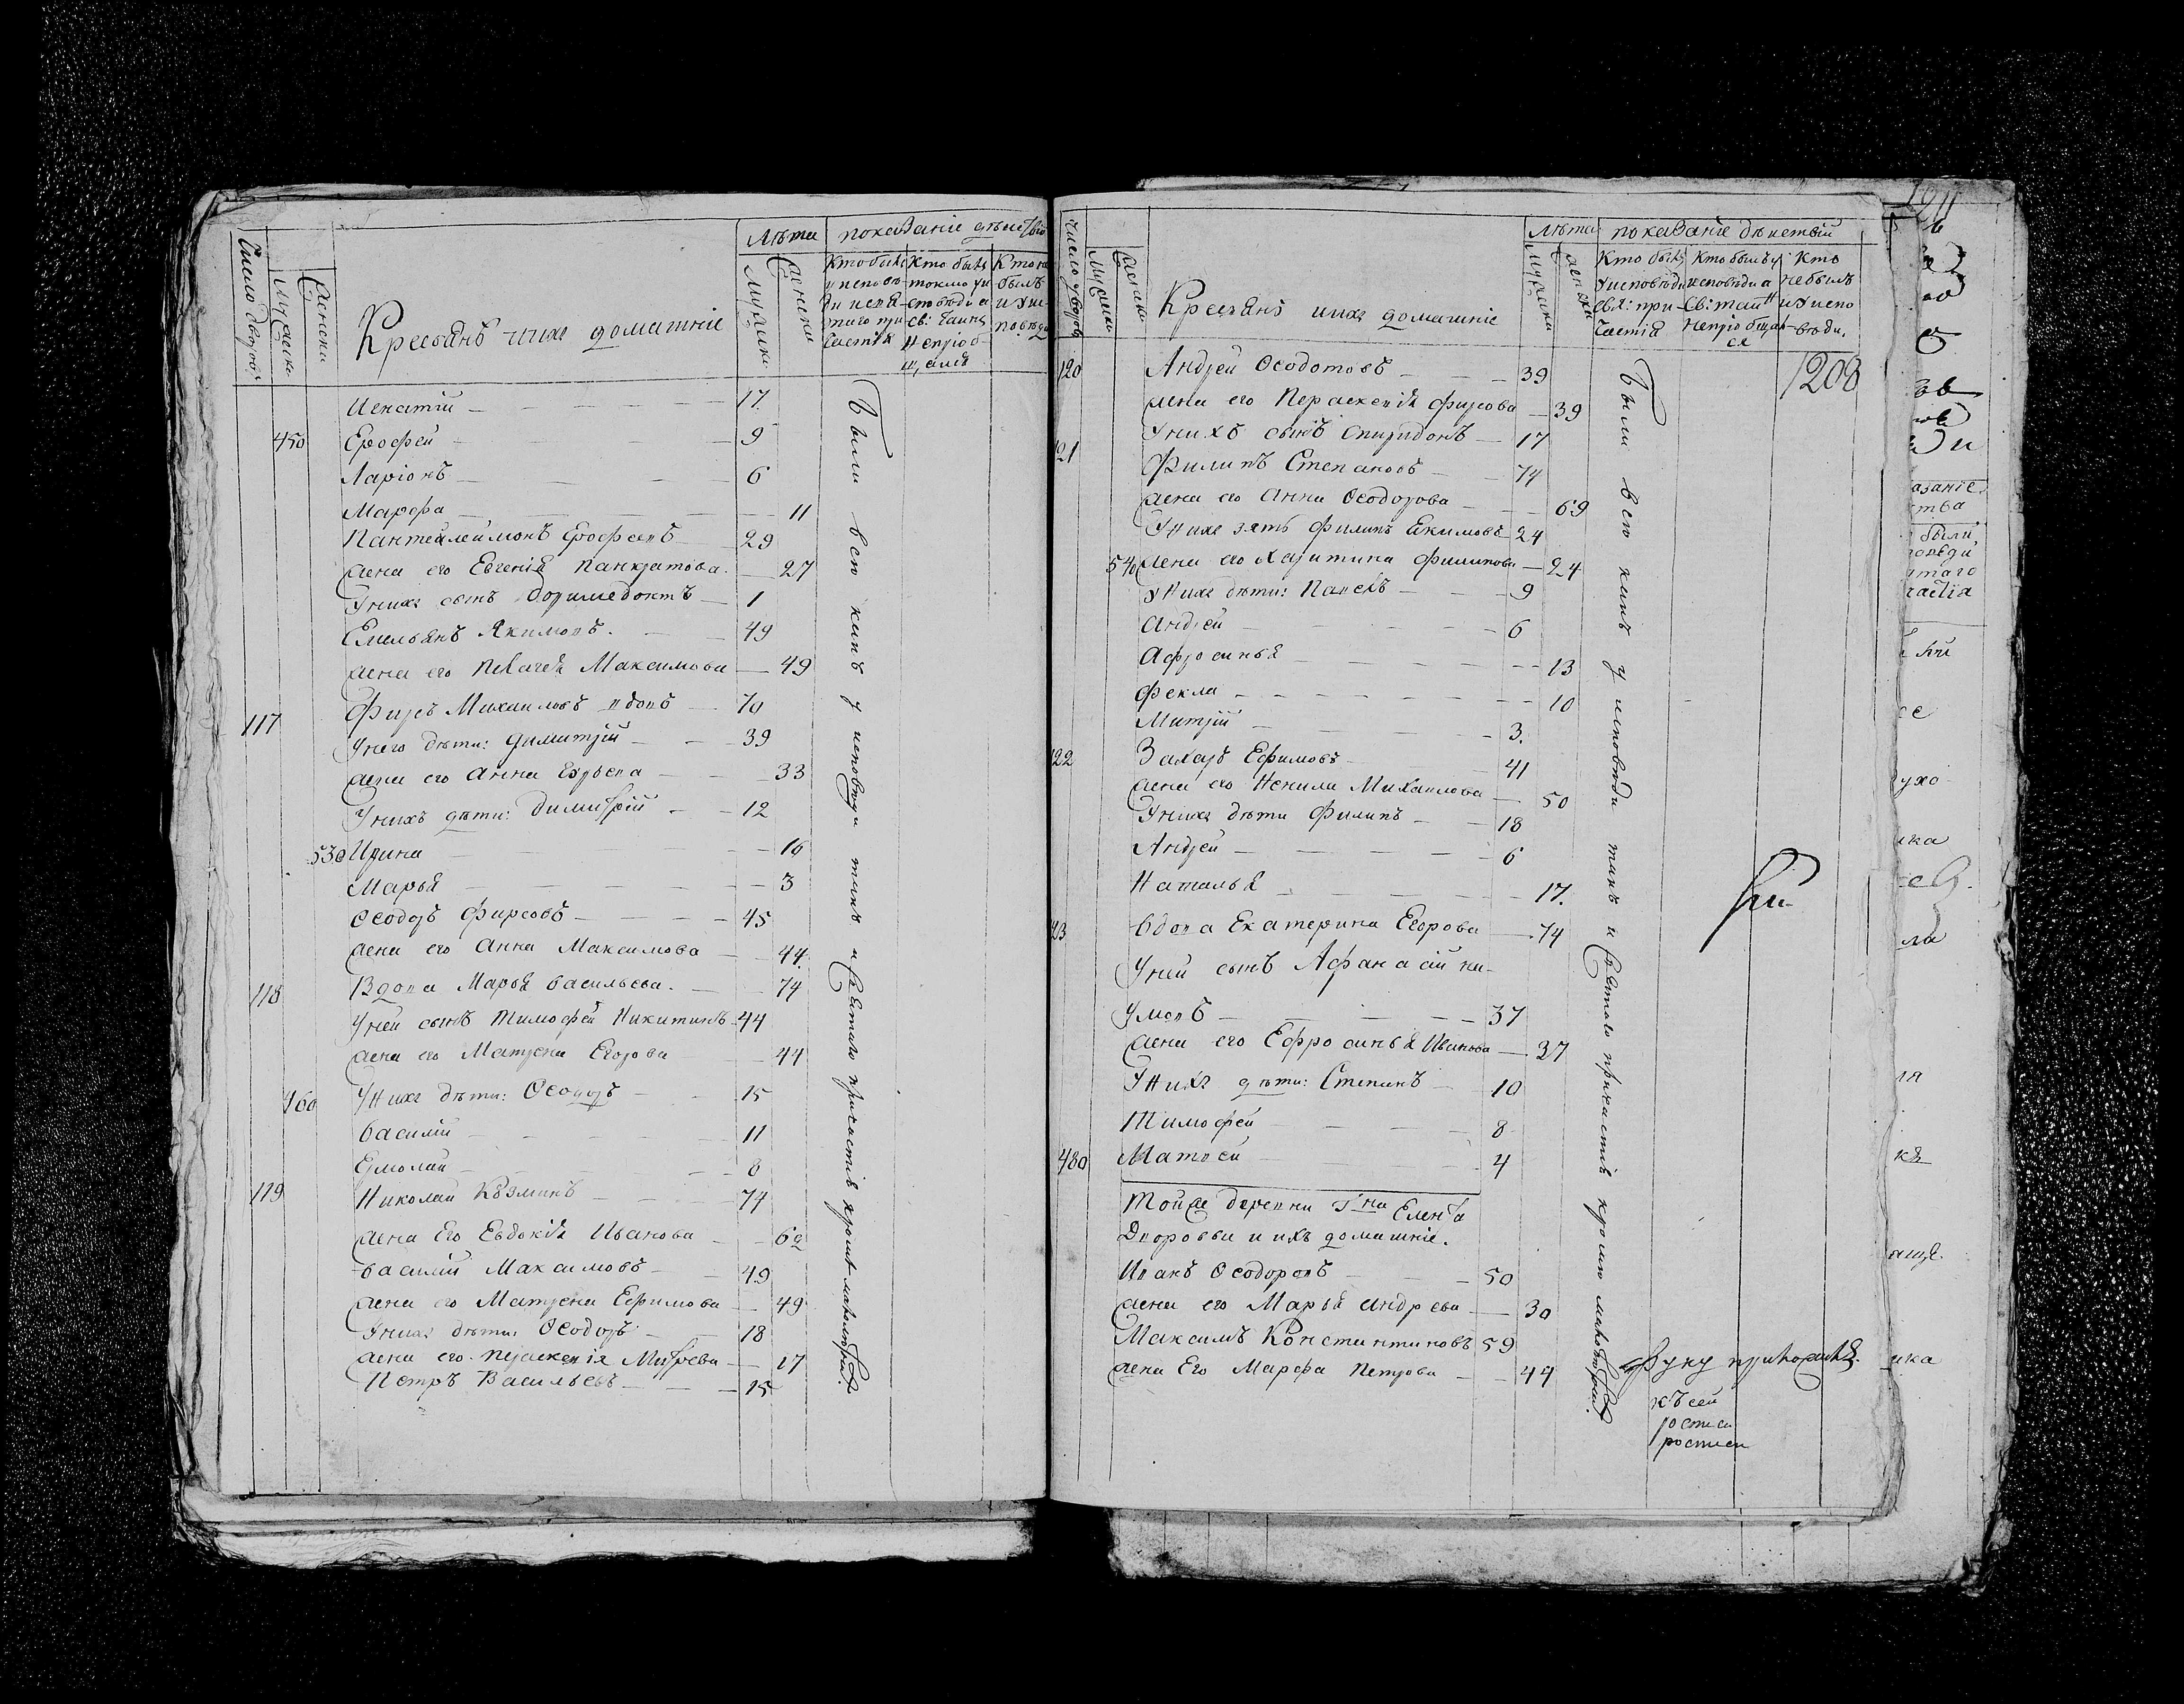 Число дворовъ
Мужеска
Женска
Крестьянъ ихъ домашніе
Лѣта
мужски
женски
показаніе дѣиства
Кто былъ у исповѣди и свя-таго при-частія
Кто былъ токмо у и-сповѣди а св: таинъ непріоб-щался
Кто не былъ и у ис-повѣди
Игнатіи — 17
450 Ерофей — 9
Ларіонъ — 6
Марфа — 11
Пантелеимонъ Ерофеевъ — 29
жена его Евгенія Панкратова — 27
У нихъ сынъ Доримедонтъ — 1
Емельянъ Якимовъ — 49
жена его Пелагея Максимова — 49
117 Фирсъ Михаиловъ вдовъ — 70
У него дѣти: Димитріи — 39
жена его Анна — 33
У нихъ дѣти: Димитріи — 12
530 Ирина — 10
Марья — 3
Ѳеодоръ Фирсовъ — 45
жена его Анна Максимова — 44
118 Вдова Марья Васильева — 74
У ней сынъ Тимофей Никитинъ — 44
жена его Матрена Егорова — 44
460 У нихъ дѣти: Ѳеодоръ — 15
Василіи — 11
Ермолаи — 8
119 Николаи Козминъ — 74
жена Его Евдокія Иванова — 62
Василіи Максимовъ — 49
жена его Матрена Ефимова — 49
У нихъ дѣти: Ѳеодоръ — 18
жена его Параскевія — 17
Петръ Васильевъ — 15
Были всѣ какъ у исповѣди такъ и святаго причастія кромѣ малолѣтнихъ
Число дворовъ
Мужески
Женски
Крестьянъ ихъ домашніе
Лѣта
мужески
женски
показаніе дѣиствіи
Кто былъ у исповѣди свя: при-частія
Кто былъ у исповѣди а св: таин непріобщал-ся
Кто небылъ и у испо вѣди.
1208
120 Андреи Ѳеодотовъ — 39
жена его Параскевія Фирсова — 39
У нихъ сынъ Спиридонъ — 17
121 Филипъ Степановъ — 74
жена его Анна Ѳеодорова — 69
У нихъ зять Филипъ Екимовъ — 24
540 жена его Харитина Филипова — 24
У нихъ дѣти: Павелъ — 9
Андреи — 6
Афросинья — 13
Фекла — 10
Митріи — 3.
122 Захаръ Ефимовъ — 41
жена его Ненила Михаилова — 50
У нихъ дѣти Филипъ — 18
Андреи — 6
Наталья — 17.
123 Вдова Екатерина Егорова — 74
У ней сынъ Афанасіи На-
умовъ — 37
жена его Ефросинья Иванова — 37
У нихъ дѣти: Степанъ — 10
Тимофеи — 8
480 Матвеи — 4
Тойже деревни Г на
Дворовыи и ихъ домашніе.
Иванъ Ѳеодоровъ — 50
жена его Марья Андреева — 30
Максимъ Константиновъ 59
жена Его Марфа Петрова — 44
Были всѣ какъ у исповѣди такъ и святаго причастія кромѣ малолѣтнихъ
къ сей
росписи